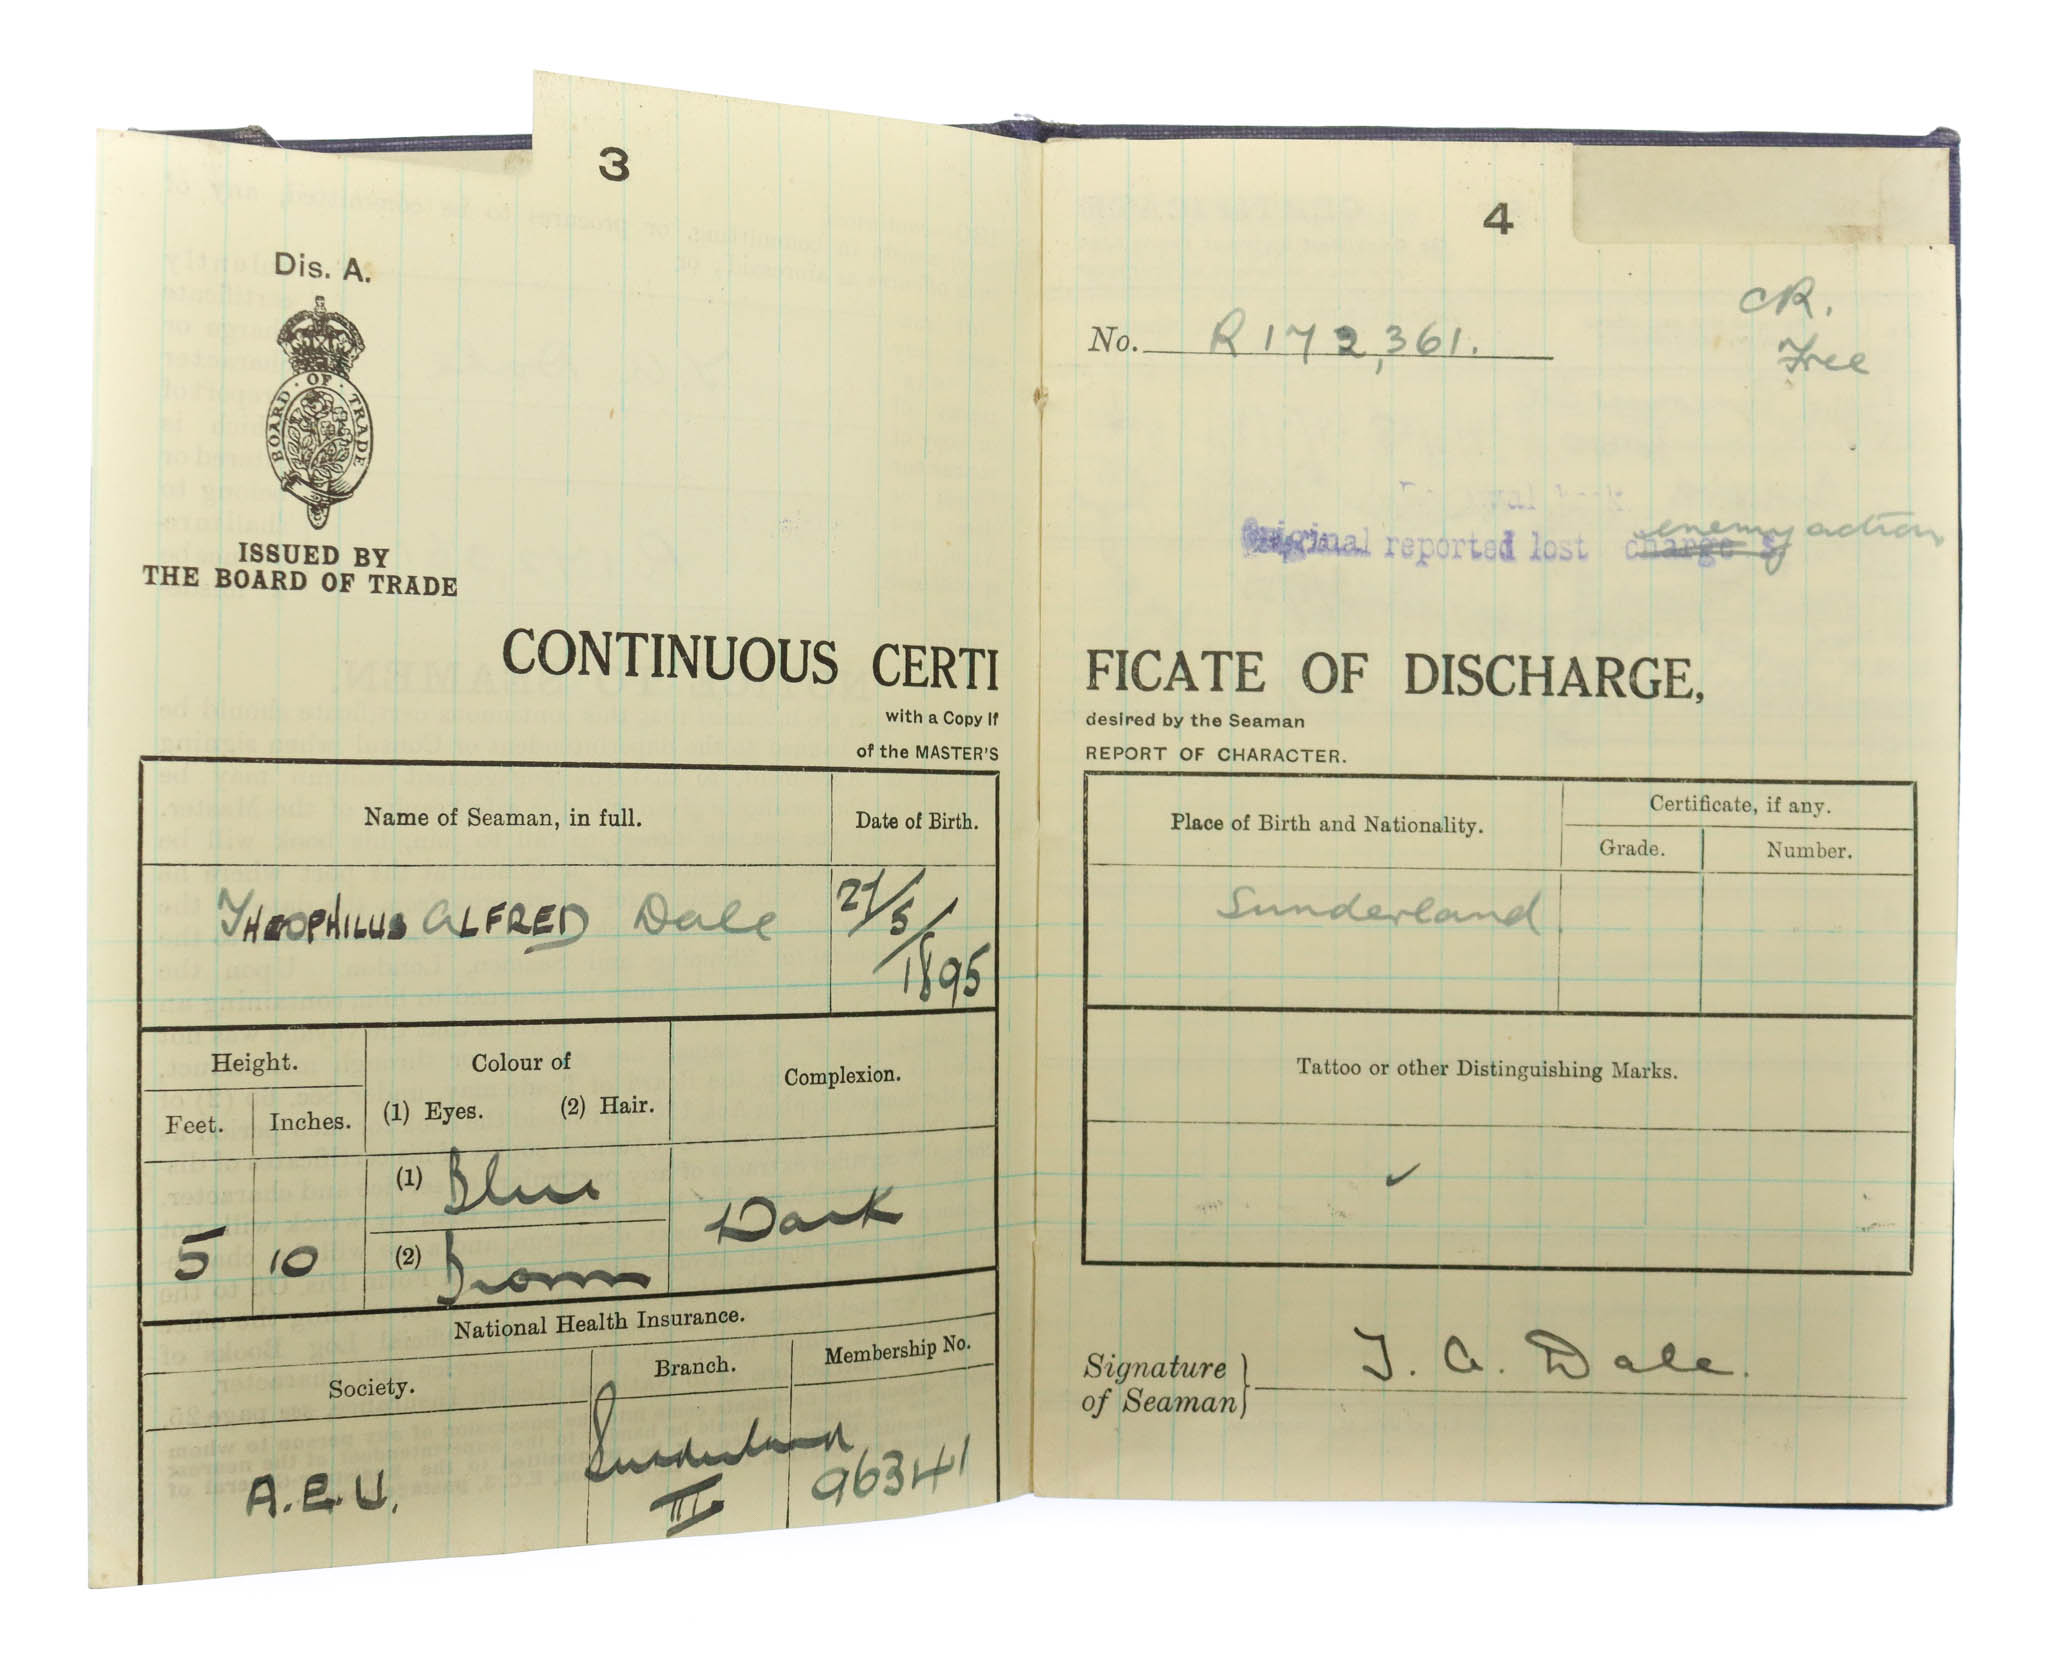 3
Dis. A.
BOARD · OF · TRADE
ISSUED BY
THE BOARD OF TRADE
CONTINUOUS CERTI
with a Copy if
of the MASTER'S
Name of Seaman, in full.
Date of Birth.
THEOPHILUS ALFRED Dale
27/5/1895
Height.
Colour of
Complexion.
Feet.
Inches.
(1) Eyes.
(2) Hair.
5
10
(1) Blue
(2) Brown
Dark
National Health Insurance.
Society.
Branch.
Membership No.
A.E.U.
Sunderland
III
96341
4
CR.
Free
No. R172,361.
Original reported lost charge enemy action
FICATE OF DISCHARGE,
desired by the Seaman
REPORT OF CHARACTER.
Place of Birth and Nationality.
Certificate, if any.
Grade.
Number.
Sunderland
Tattoo or other Distinguishing Marks.
Signature
of Seaman
T. A. Dale.